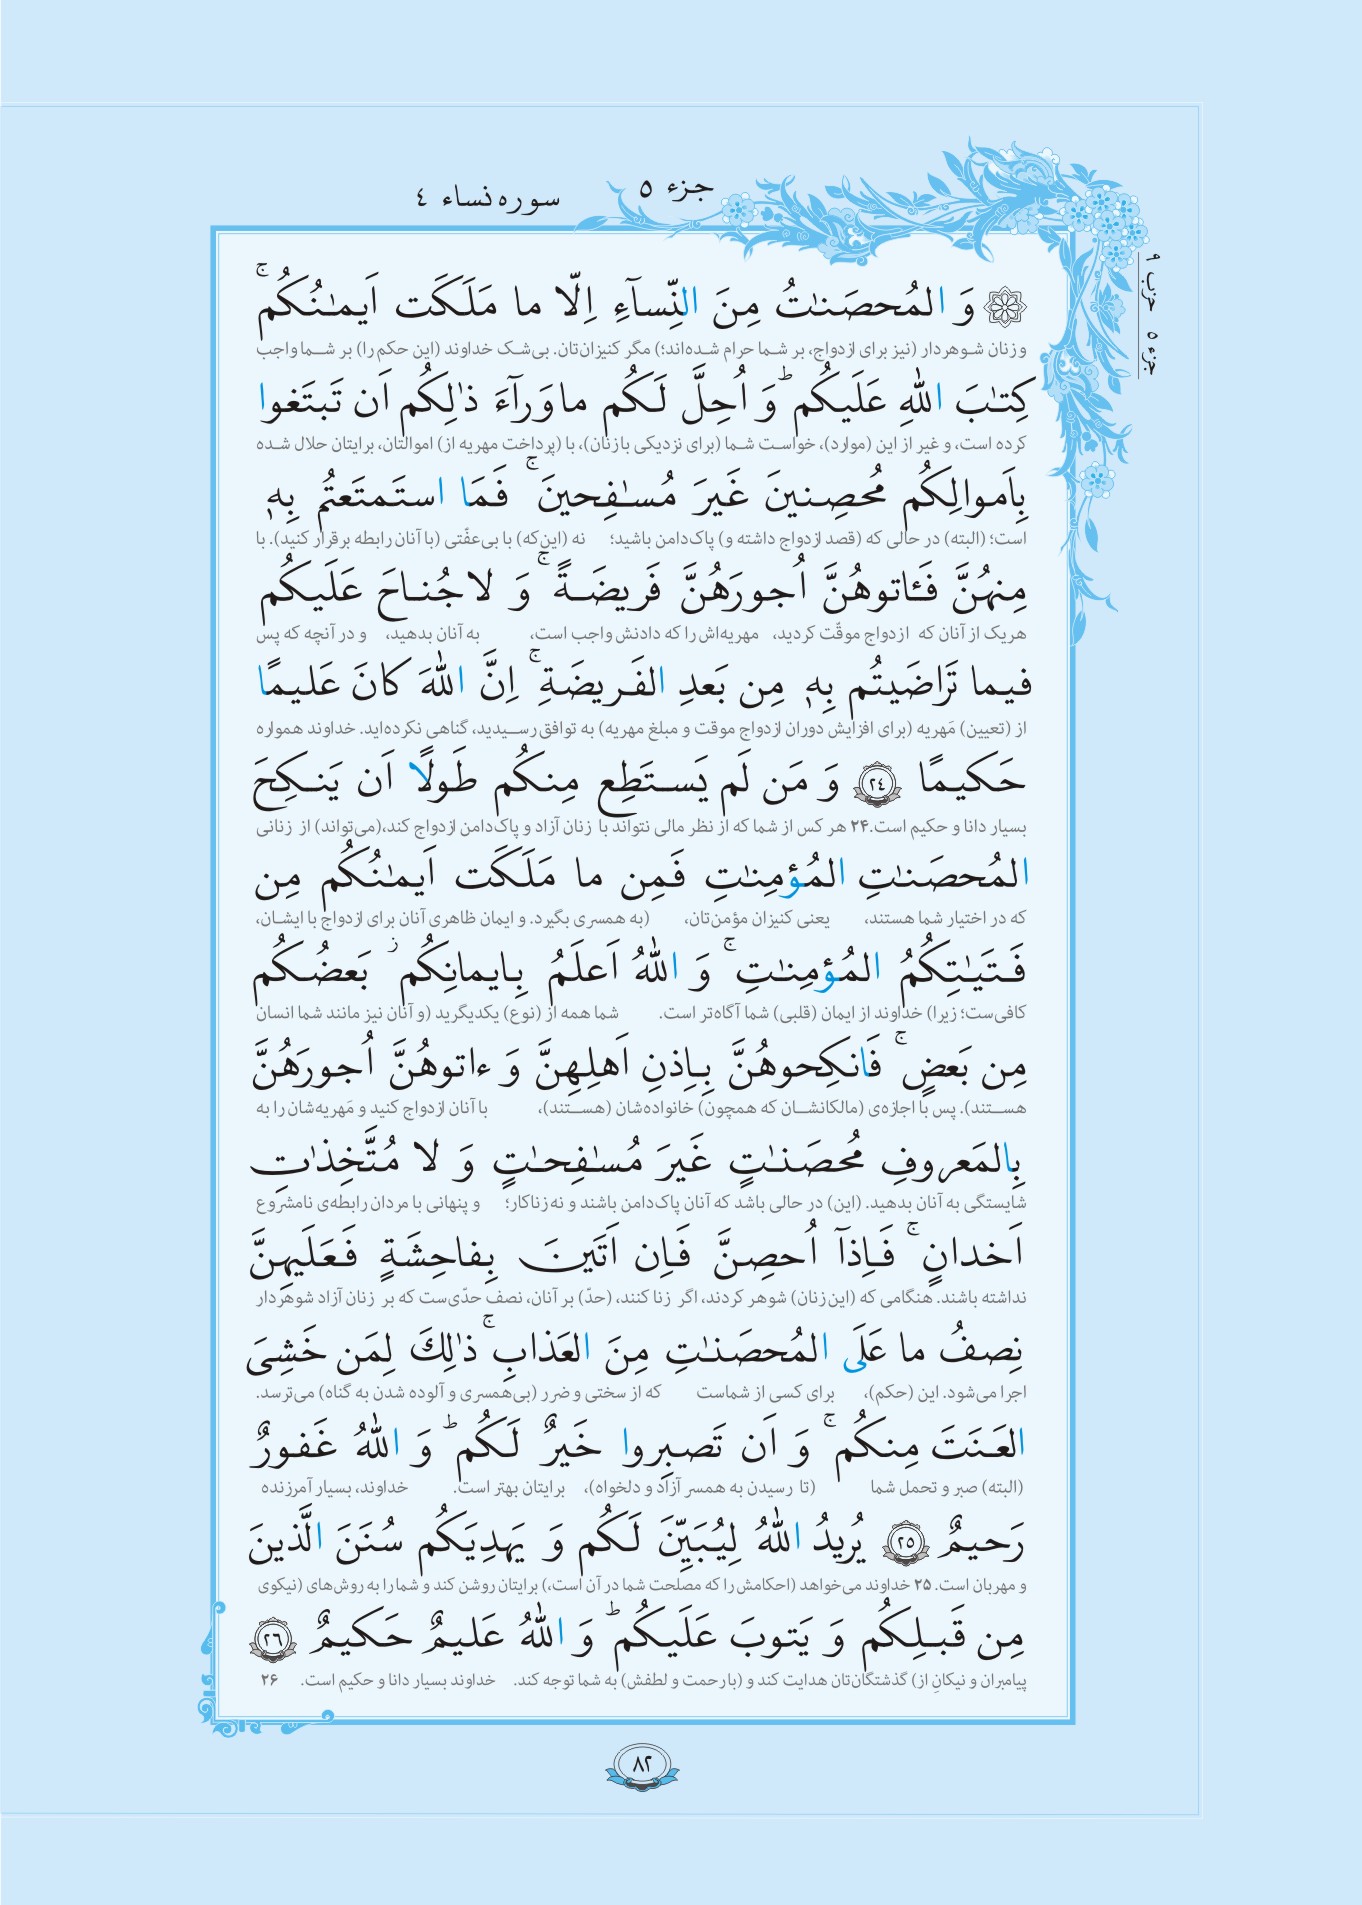 جزء ٥
سوره نساء ٤
جزء ٥ حزب ٩
وَ المُحصَنـٰتُ مِنَ النِّسآءِ اِلّا ما مَلَكَت اَيمـٰنُكُم ۚ
و زنان شوهردار (نیز برای ازدواج، بر شما حرام شده‌اند؛) مگر کنیزان‌تان. بی‌شک خداوند (این حکم را) بر شـما واجب
كِتـٰبَ اللّٰهِ عَلَيكُم ۗ وَ اُحِلَّ لَكُم ما وَرآءَ ذٰلِكُم اَن تَبتَغوا
کرده است، و غیر از این (موارد)، خواست شما (برای نزدیکی با زنان)، با (پرداخت مهریه از) اموالتان، برایتان حلال شده
بِاَموالِكُم مُحصِنينَ غَيرَ مُسـٰفِحينَ ۚ فَمَا استَمتَعتُم بِهٖ
است؛ (البته) در حالی که (قصد ازدواج داشته و) پاک‌دامن باشید؛ نه (این‌که) با بی‌عفّتی (با آنان رابطه برقرار کنید). با
مِنهُنَّ فَـٔاتوهُنَّ اُجورَهُنَّ فَريضَةً ۚ وَ لا جُناحَ عَلَيكُم
هر یک از آنان که ازدواج موقّت کردید، مهریه‌اش را که دادنش واجب است، به آنان بدهید، و در آنچه که پس
فيما تَرٰاضَيتُم بِهٖ مِن بَعدِ الفَريضَةِ ۚ اِنَّ اللّٰهَ كانَ عَليمًا
از (تعیین) مَهریه (برای افزایش دوران ازدواج موقت و مبلغ مهریه) به توافق رسـیدید، گناهی نکرده‌اید. خداوند همواره
حَكيمًا ٢٤ وَ مَن لَم يَستَطِع مِنكُم طَولًا اَن يَنكِحَ
بسیار دانا و حکیم است.۲۴ هر کس از شما که از نظر مالی نتواند با زنان آزاد و پاک‌دامن ازدواج کند،(می‌تواند) از زنانی
المُحصَنـٰتِ المُؤمِنـٰتِ فَمِن ما مَلَكَت اَيمـٰنُكُم مِن
که در اختیار شما هستند، یعنی کنیزان مؤمن‌تان، (به همسری بگیرد. و ایمان ظاهری آنان برای ازدواج با ایشـان،
فَتَيـٰتِكُمُ المُؤمِنـٰتِ ۚ وَ اللّٰهُ اَعلَمُ بِايمانِكُم ز بَعضُكُم
کافی‌ست؛ زیرا) خداوند از ایمان (قلبی) شما آگاه‌تر است. شما همه از (نوع) یکدیگرید (و آنان نیز مانند شما انسان
مِن بَعضٍ ۚ فَانكِحوهُنَّ بِاِذنِ اَهلِهِنَّ وَ ءاتوهُنَّ اُجورَهُنَّ
هسـتند). پس با اجازه‌ی (مالکانشـان که همچون) خانواده‌شان (هسـتند)، با آنان ازدواج کنید و مَهریه‌شان را به
بِالمَعروفِ مُحصَنـٰتٍ غَيرَ مُسـٰفِحـٰتٍ وَ لا مُتَّخِذٰتِ
شایستگی به آنان بدهید. (این) در حالی باشد که آنان پاک‌دامن باشند و نه زناکار؛ و پنهانی با مردان رابطه‌ی نامشروع
اَخدانٍ ۚ فَاِذآ اُحصِنَّ فَاِن اَتَينَ بِفاحِشَةٍ فَعَلَيهِنَّ
نداشته باشند. هنگامی که (این‌زنان) شوهر کردند، اگر زنا کنند، (حدّ) بر آنان، نصف حدّی‌ست که بر زنان آزاد شوهردار
نِصفُ ما عَلَى المُحصَنـٰتِ مِنَ العَذابِ ۚ ذٰلِكَ لِمَن خَشِىَ
اجرا می‌شود. این (حکم)، برای کسی از شماست که از سختی و ضرر (بی‌همسری و آلوده شدن به گناه) می‌ترسد.
العَنَتَ مِنكُم ۚ وَ اَن تَصبِروا خَيرٌ لَكُم ۗ وَ اللّٰهُ غَفورٌ
(البته) صبر و تحمل شما (تا رسیدن به همسر آزاد و دلخواه)، برایتان بهتر است. خداوند، بسیار آمرزنده
رَحيمٌ ٢٥ يُريدُ اللّٰهُ لِيُبَيِّنَ لَكُم وَ يَهدِيَكُم سُنَنَ الَّذينَ
و مهربان است. ۲۵ خداوند می‌خواهد (احکامش را که مصلحت شما در آن است،) برایتان روشن کند و شما را به روش‌های (نیکوی
مِن قَبلِكُم وَ يَتوبَ عَلَيكُم ۗ وَ اللّٰهُ عَليمٌ حَكيمٌ ٢٦
پیامبران و نیکان از) گذشتگان‌تان هدایت کند و (با رحمت و لطفش) به شما توجه کند. خداوند بسیار دانا و حکیم است. ۲۶
٨٢